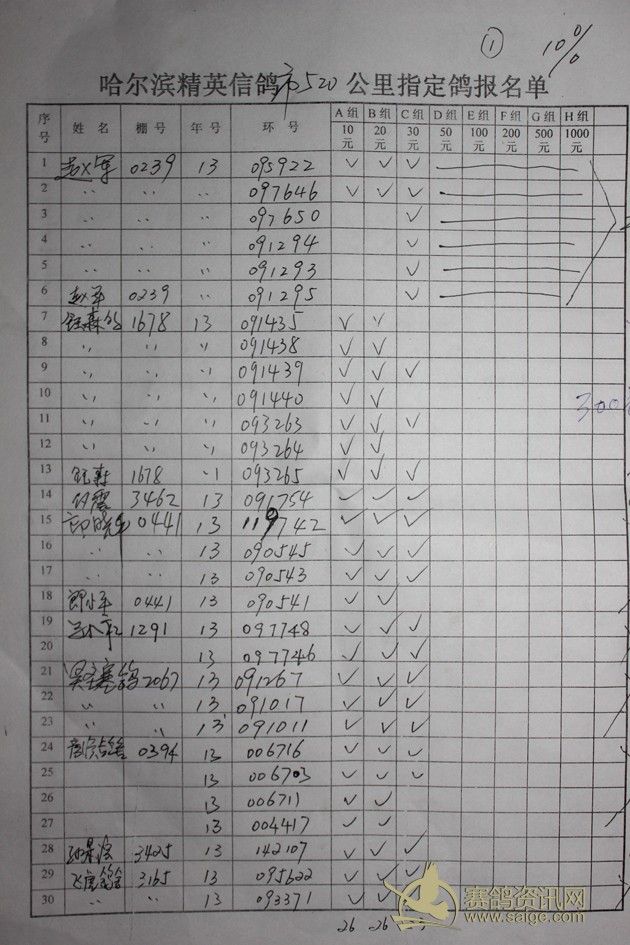 ① 10%
哈尔滨精英信鸽市520公里指定鸽报名单
序号 姓名 棚号 年号 环号 A组10元 B组20元 C组30元 D组50元 E组100元 F组200元 G组500元 H组1000元
1 0239 13 095922 ✓ ✓ ✓
2 〃 〃 〃 097646 ✓ ✓ ✓
3 〃 〃 〃 097650 ✓
4 〃 〃 〃 091294 ✓
5 〃 〃 〃 091293 ✓
6 赵军 0239 〃 091295 ✓
7 1678 13 091435 ✓ ✓
8 〃 〃 〃 091438 ✓ ✓
9 〃 〃 〃 091439 ✓ ✓ ✓
10 〃 〃 〃 091440 ✓ ✓
11 〃 〃 〃 093263 ✓ ✓ ✓
12 〃 〃 〃 093264 ✓ ✓
13 1678 〃 093265 ✓ ✓ ✓
14 3462 13 091754 ✓ ✓ ✓
15 0441 13 119742 ✓ ✓ ✓
16 〃 〃 13 090545 ✓ ✓ ✓
17 〃 〃 13 090543 ✓ ✓ ✓
18 0441 13 090541 ✓ ✓
19 1291 13 097748 ✓ ✓ ✓
20 13 097746 ✓ ✓ ✓
21 2067 13 091267 ✓ ✓ ✓
22 〃 〃 13 091017 ✓ ✓ ✓
23 〃 〃 13 091011 ✓ ✓ ✓
24 0394 13 006716 ✓ ✓ ✓
25 13 006703 ✓ ✓ ✓
26 13 006711 ✓ ✓
27 13 004417 ✓ ✓
28 3425 13 142107 ✓ ✓ ✓
29 飞虎鸽舍 3165 13 095622 ✓ ✓ ✓
30 〃 〃 13 093371 ✓ ✓
26 26
赛鸽资讯网
www.saige.com